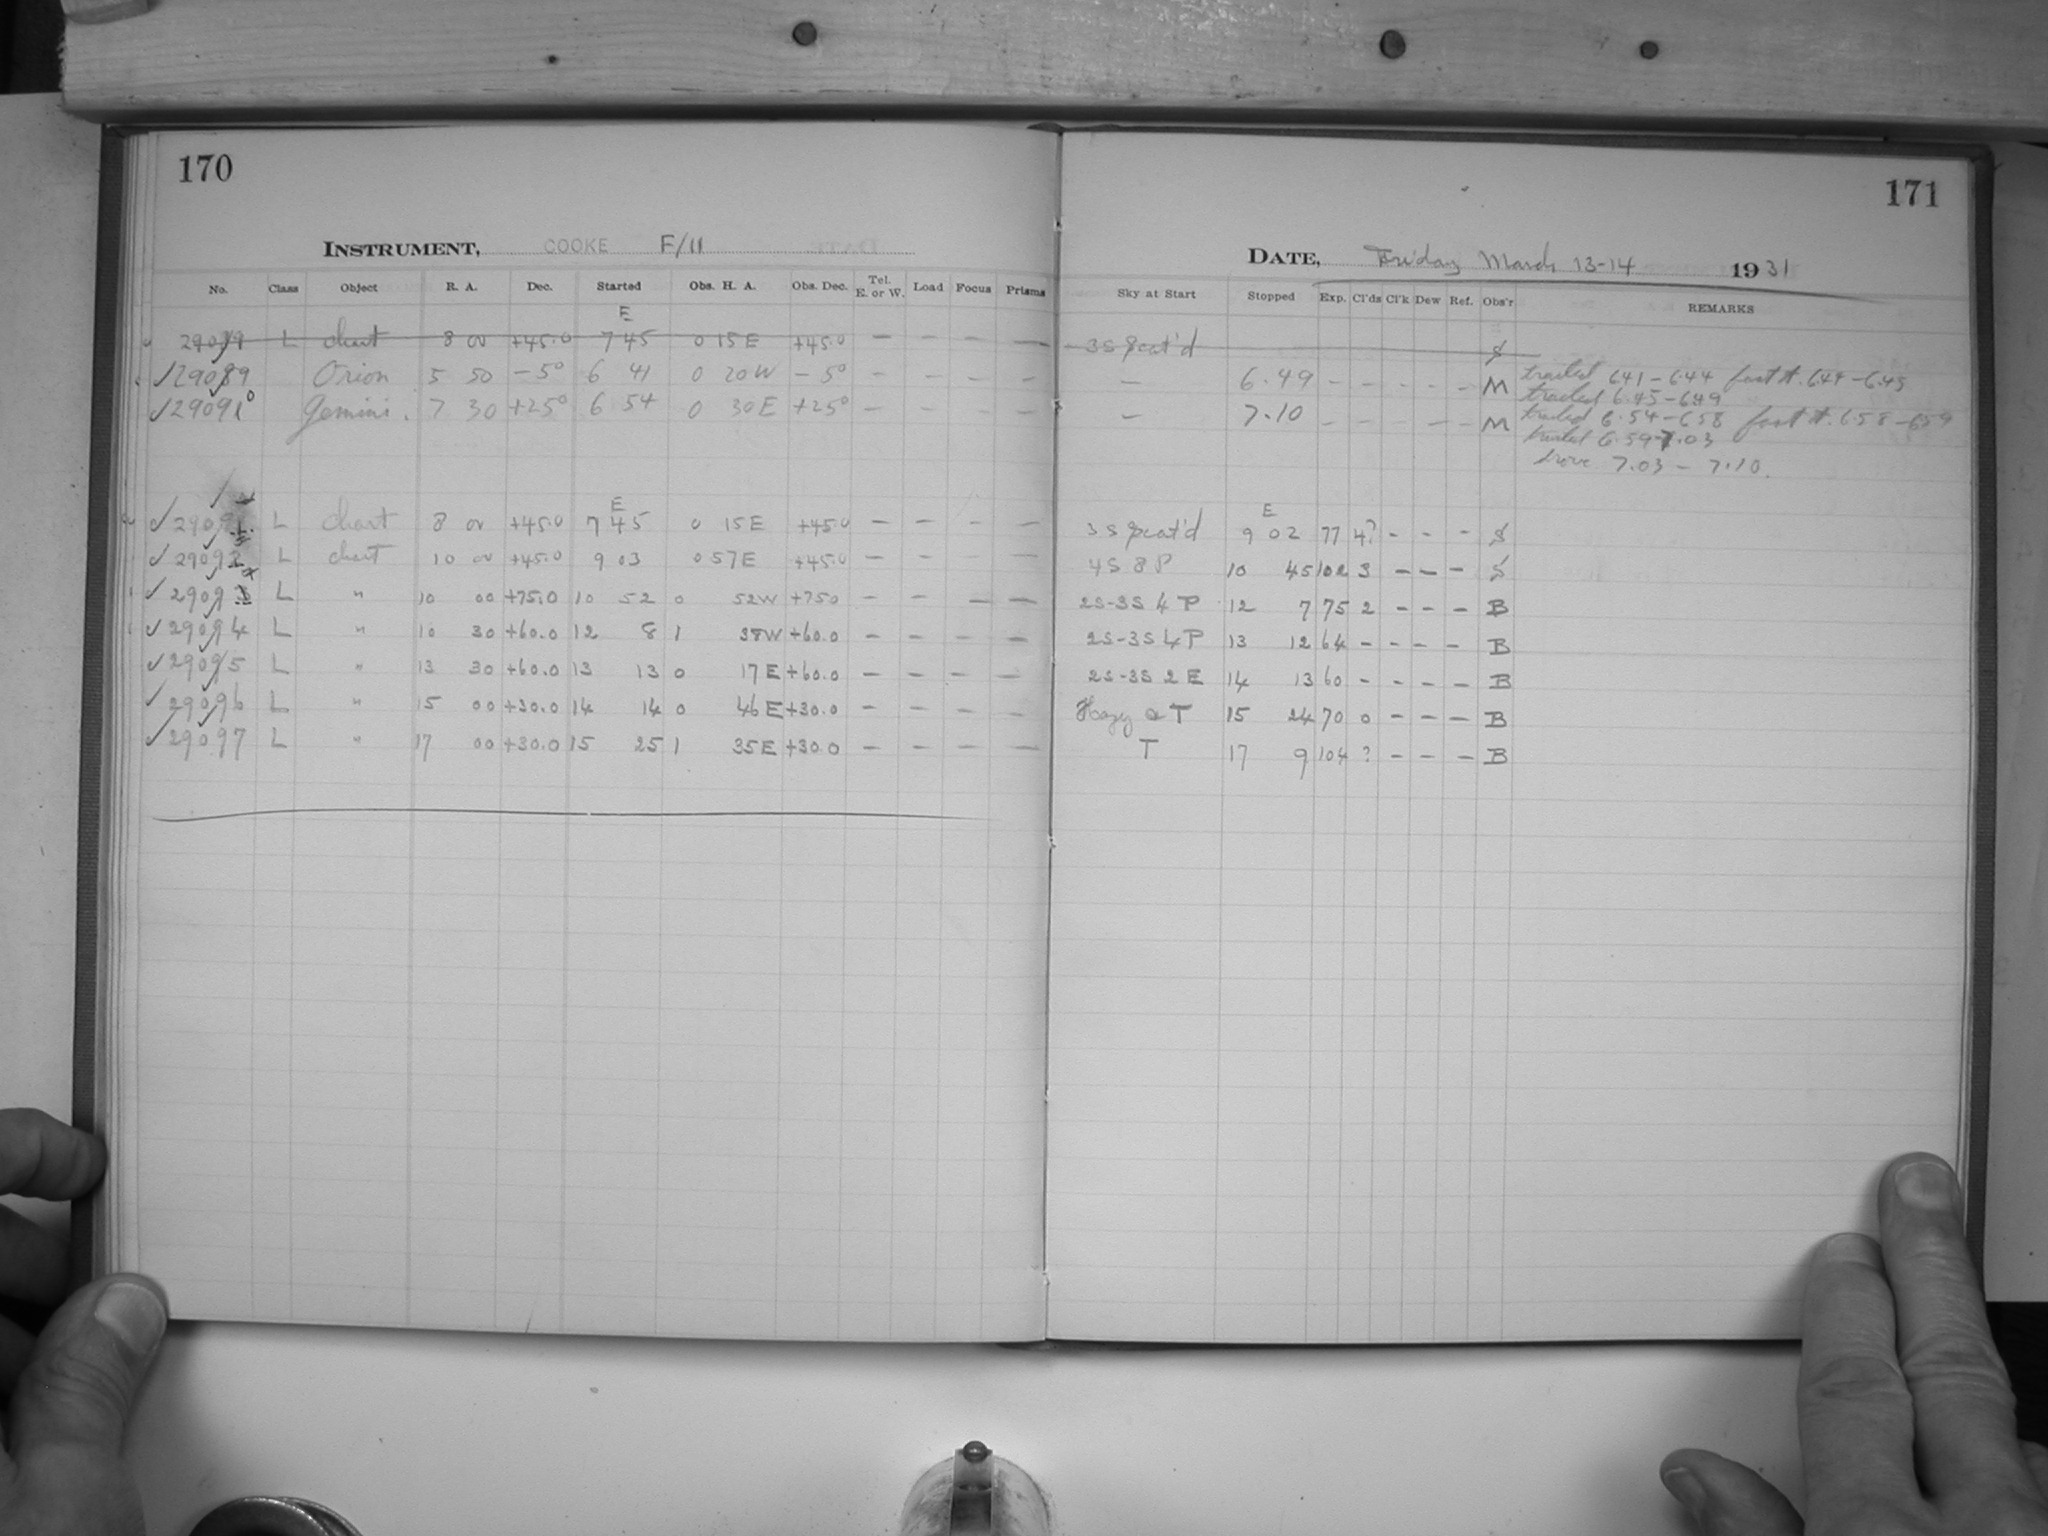 170
171
INSTRUMENT, COOKE F/11
DATE, Friday March 13-14 1931
No. Class Object R. A. Dec. Started Obs. H. A. Obs. Dec. Tel. E. or W. Load Focus Prisms Sky at Start Stopped Exp. Cl'ds Cl'k Dew Ref. Obs'r REMARKS
E
L chart 8 00 +45.0 7 45 0 15 E +45.0 — — — — 3S Scat'd S
✓29089 Orion 5 50 -5° 6 41 0 20W -5° — — — — — 6.49 - - - - - M trailed 6.41-6.44 fast tr. 6.44-6.45
trailed 6.45-6.49
✓29090 Gemini. 7 30 +25° 6 54 0 30E +25° — — — — — 7.10 - - - - - M trailed 6.54-6.58 fast tr. 6.58-6.59
trailed 6.59-7.03
drove 7.03 - 7.10.
E E
✓29091 L chart 8 00 +45.0 7 45 0 15 E +45.0 — — — — 3S Scat'd 9 02 77 4? - - - S
✓29092 L chart 10 00 +45.0 9 03 0 57E +45.0 — — — — 4S 8 P 10 45 102 3 — — — S
✓29093 L " 10 00 +75.0 10 52 0 52W +750 — — — — 2S-3S 4 P 12 7 75 2 - - - B
✓29094 L " 10 30 +60.0 12 8 1 38W +60.0 — — — — 2S-3S 4 P 13 12 64 - - - - B
✓29095 L " 13 30 +60.0 13 13 0 17 E +60.0 — — — — 2S-3S 2 E 14 13 60 - - - - B
✓29096 L " 15 00 +30.0 14 14 0 46 E +30.0 — — — — Hazy & T 15 24 70 0 - - - B
✓29097 L " 17 00 +30.0 15 25 1 35 E +30.0 — — — — T 17 9 104 ? - - - B